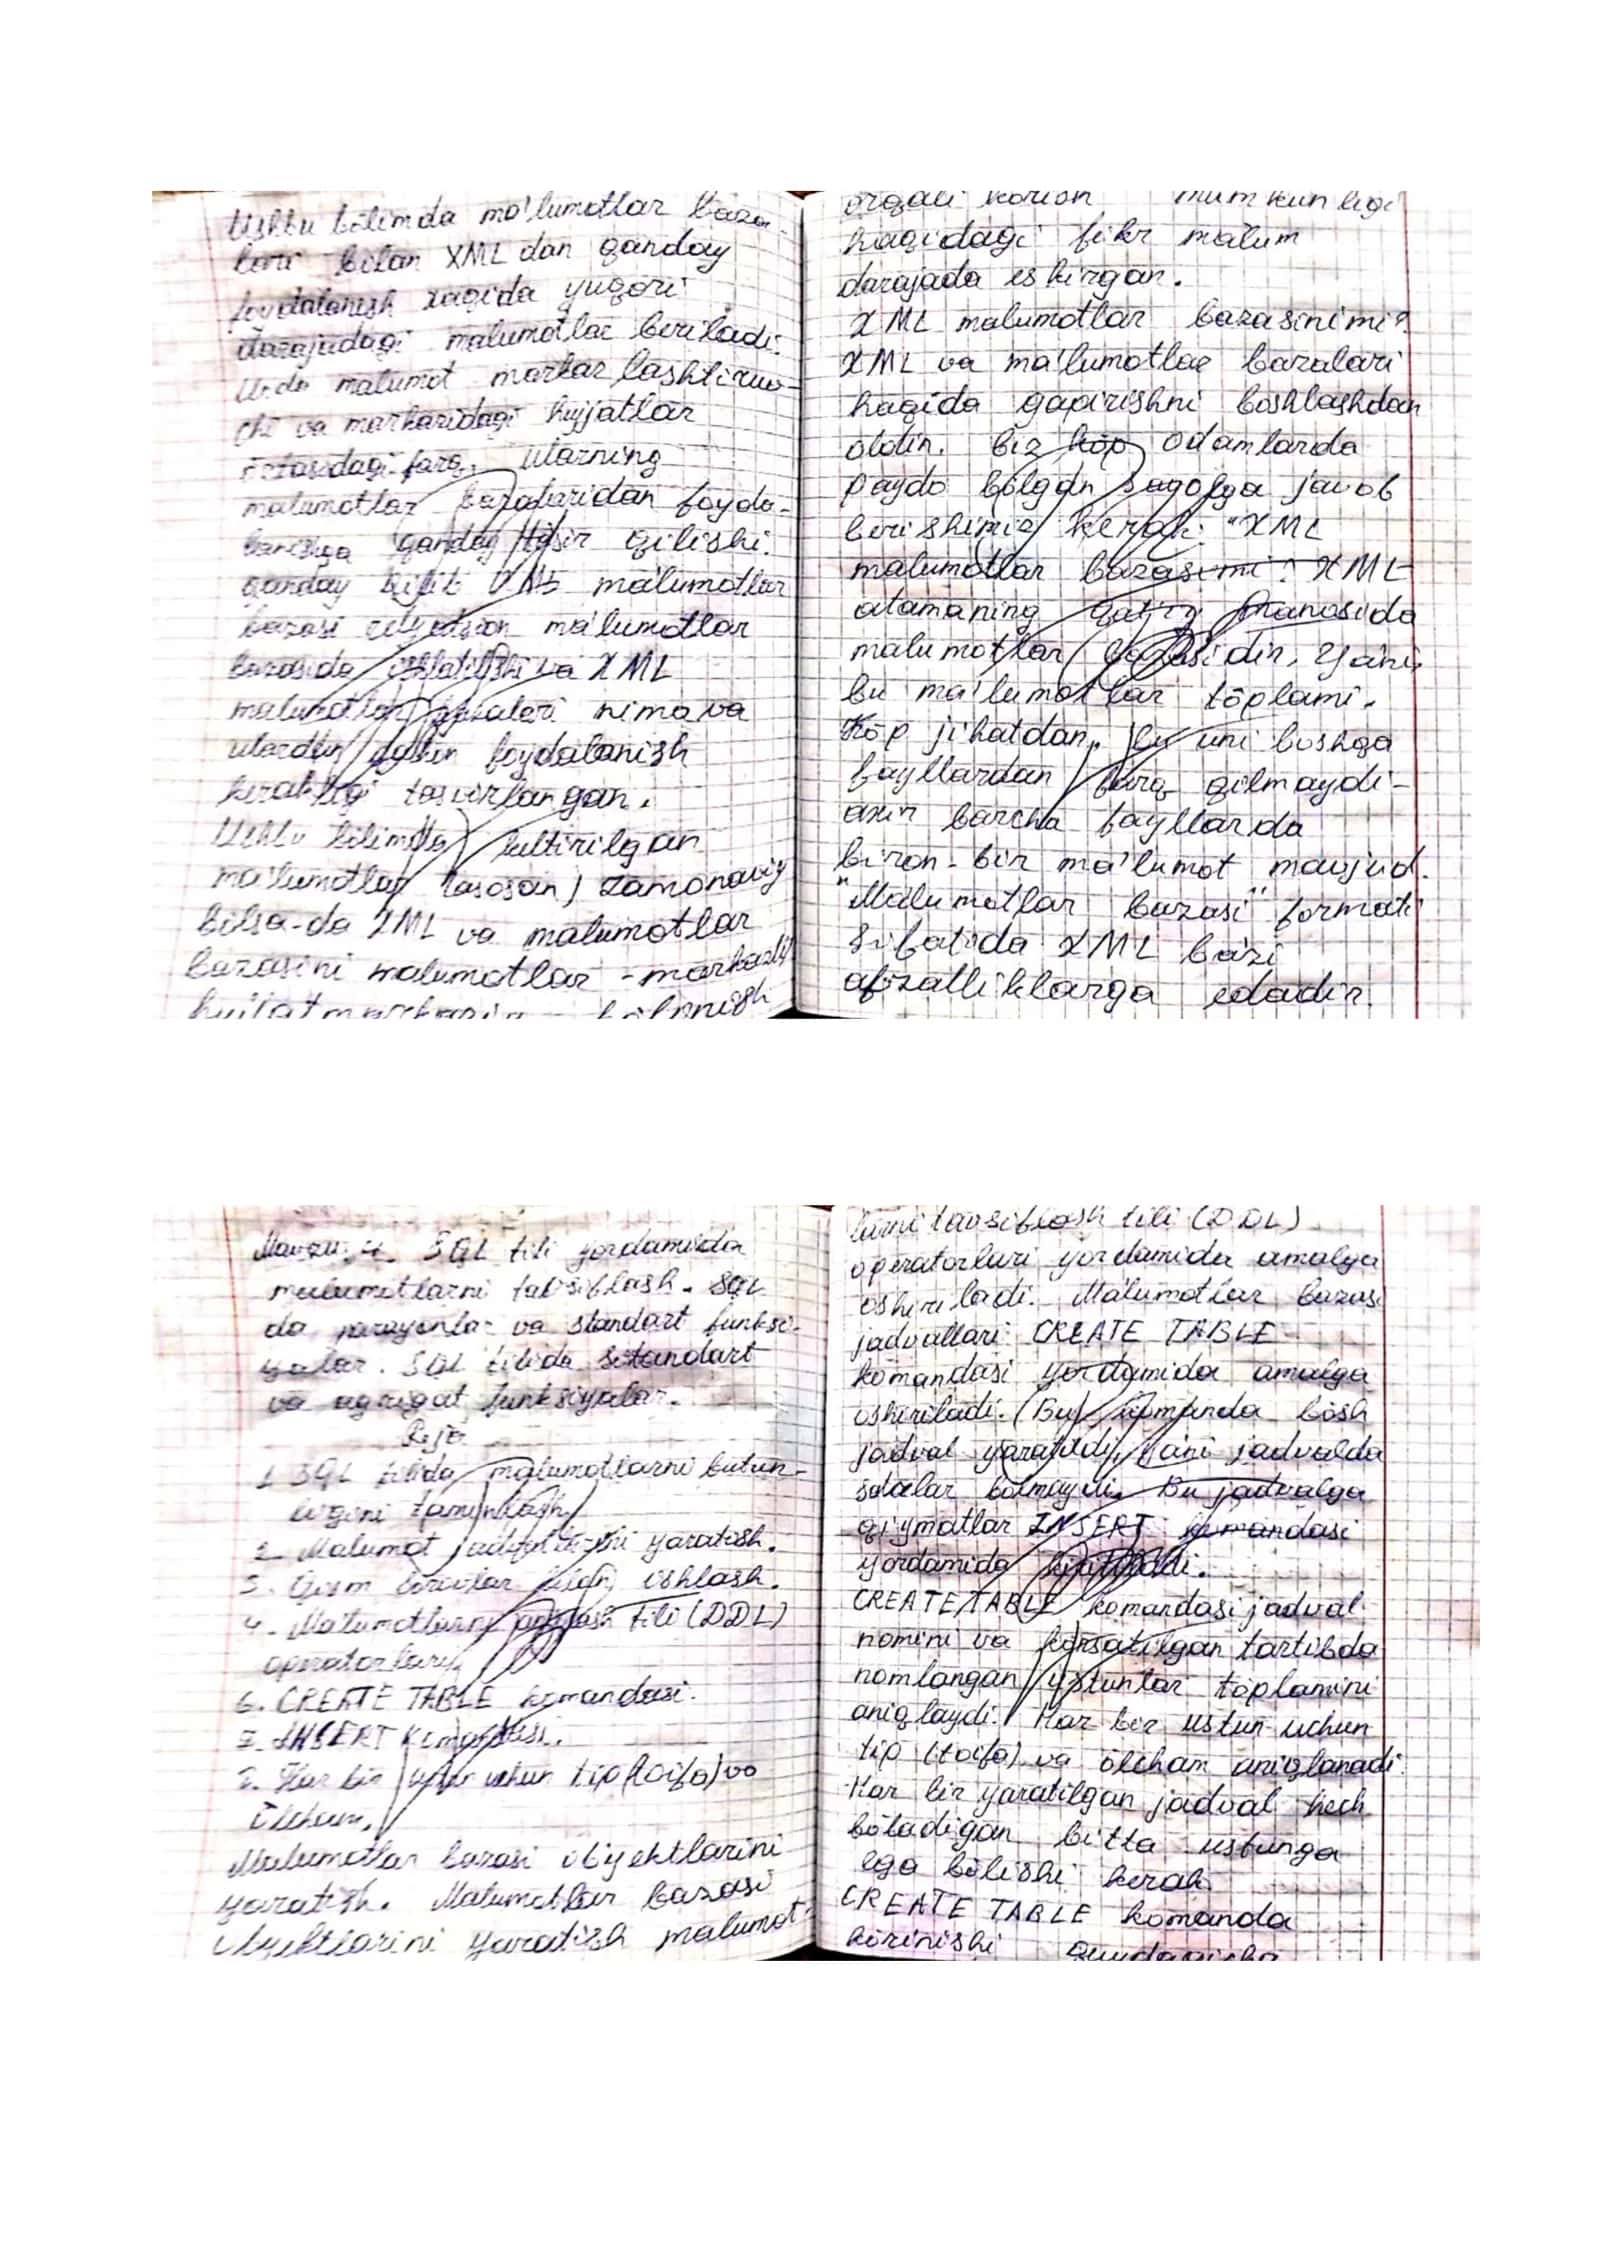 Ushbu bōlimda ma'lumotlar baza-
lari bilan XML dan qanday
foydalanish xaqida yuqori
darajadagi malumotlar beriladi.
Unda malumot markazlashtiruv-
chi va markazidagi hujjatlar
ōrtasidagi farq, ularning
malumotlar bazalaridan foyda-
lanishga qanday ta'sir qilishi.
qanday qilib XML ma'lumotlar
bazasi relyatsion ma'lumotlar
bazasida ishlatilishi va XML
malumotlar bazalari nima va
ulardan foydalanish
kerakligi tasvirlangan.
Ushbu bōlimda keltirilgan
ma'lumotlar (asosan) zamonaviy
bōlsa-da XML va malumotlar
bazasini malumotlar - markazli
hujjatmarkazia - bōlinish
orqali kōrish mumkunligi
haqidagi fikr ma'lum
darajada eskirgan.
XML malumotlar bazasinimi?
XML va ma'lumotlar bazalari
haqida gapirishni boshlashdan
oldin. biz kōp odamlarda
paydo bōlgan savolga javob
berishimiz kerak: "XML
malumotlar bazasimi? XML
atamaning qat'iy ma'nosida
malumotlar bazasidir. Ya'ni,
bu ma'lumotlar tōplami.
Kōp jihatdan, bu uni boshqa
fayllardan farq qilmaydi-
axir barcha fayllarda
biron-bir ma'lumot mavjud.
"Malumotlar bazasi" formati
sifatida XML ba'zi
afzalliklarga egadir.
Mavzu: 4. SQL tili yordamida
malumotlarni tafsiflash. SQL
da jarayonlar va standart funksi-
yalar. SQL tilida sitandart
va agrigat funksiyalar.
Reja
1. SQL tilida malumotlarni butun-
ligini taminlash
2. Malumot jadvallarini yaratish.
3. Qism sorovlar bilan ishlash.
4. Ma'lumotlarni aniqlash tili (DDL)
operatorlari.
6. CREATE TABLE komandasi.
7. INSERT komandasi.
8. Har bir ustun uchun tip(toifa) va
Ōlcham.
Malumotlar bazasi obyektlarini
yaratish. Malumotlar bazasi
obyektlarini yaratish malumot-
larni tavsiflash tili (DDL)
operatorlari yordamida amalga
oshiriladi. Ma'lumotlar bazasi
jadvallari CREATE TABLE
komandasi yordamida amalga
oshiriladi. (Bu) komanda bōsh
jadval yaratildi, yani jadvalda
satrlar bōlmaydi. Bu jadvalga
qiymatlar INSERT komandasi
yordamida kiritiladi.
CREATE TABLE komandasi jadval
nomini va kōrsatilgan tartibda
nomlangan ustunlar tōplamini
aniqlaydi. Har bir ustun uchun
tip (toifa) va ōlcham aniqlanadi.
Har bir yaratilgan jadval hech
bōladigan bitta ustunga
ega bōlishi kerak.
CREATE TABLE komanda
kōrinishi quydagicha